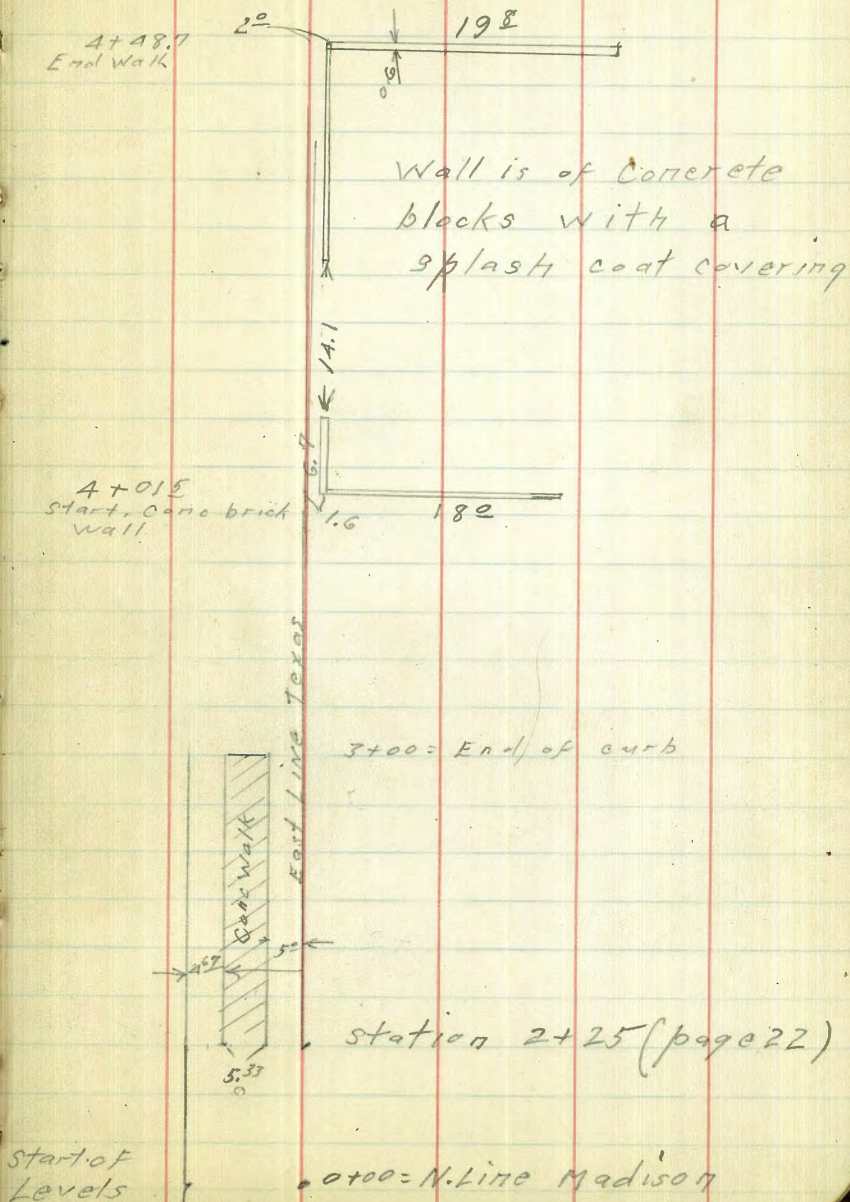 2º
19⁸
4+48.7
End Walk
0.6
Wall is of Concrete
blocks with a
splash coat covering
14.1
6.7
4+01⁵
start. Conc brick
wall
1.6
18º
East Line Texas
3+00 = End of curb
Conc Walk
5º
4⁶⁷
Station 2+25 (page 22)
5.³³
Start of
Levels
0+00 = N. Line Madison